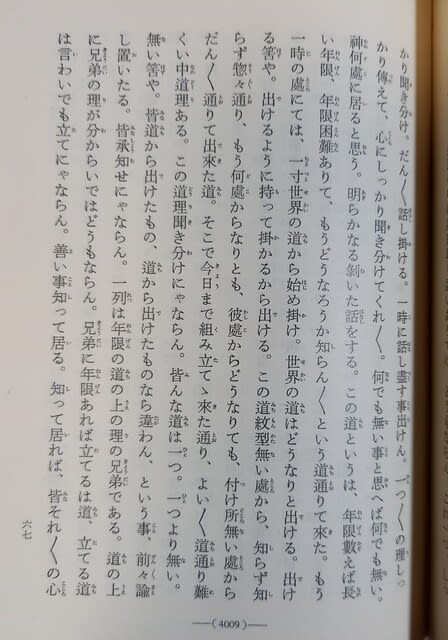 かり聞き分け。だん〳〵話し掛ける。一時に話し盡す事出けん。一つ〳〵の理しっ
かり傳えて、心にしっかり聞き分けてくれ〳〵。何でも無い事と思へば何でも無い。
神何處に居ると思う。明らかなる剖いた話をする。この道というは、年限數えば長
い年限、年限困難ありて、もうどうなろうか知らん〳〵という道通りて來た。もう
一時の處にては、一寸世界の道から始め掛け。世界の道はどうなりと出ける。出け
る筈や。出けるように持って掛かるから出ける。この道紋型無い處から、知らず知
らず惣々通り、もう何處からなりとも、彼處からどうなりても、付け所無い處から
だん〳〵通りて出來た道。そこで今日まで組み立てゝ來た通り、よい〳〵道通り難
くい中道理ある。この道理聞き分けにゃならん。皆んな道は一つ。一つより無い。
無い筈や。皆道から出けたもの、道から出けたものなら違わん、という事、前々諭
し置いたる。皆承知せにゃならん。一列は年限の道の上の理の兄弟である。道の上
に兄弟の理が分からいではどうもならん。兄弟に年限あれば立てるは道、立てる道
は言わいでも立てにゃならん。善い事知って居る。知って居れば、皆それ〳〵の心
六七
―(4009)―